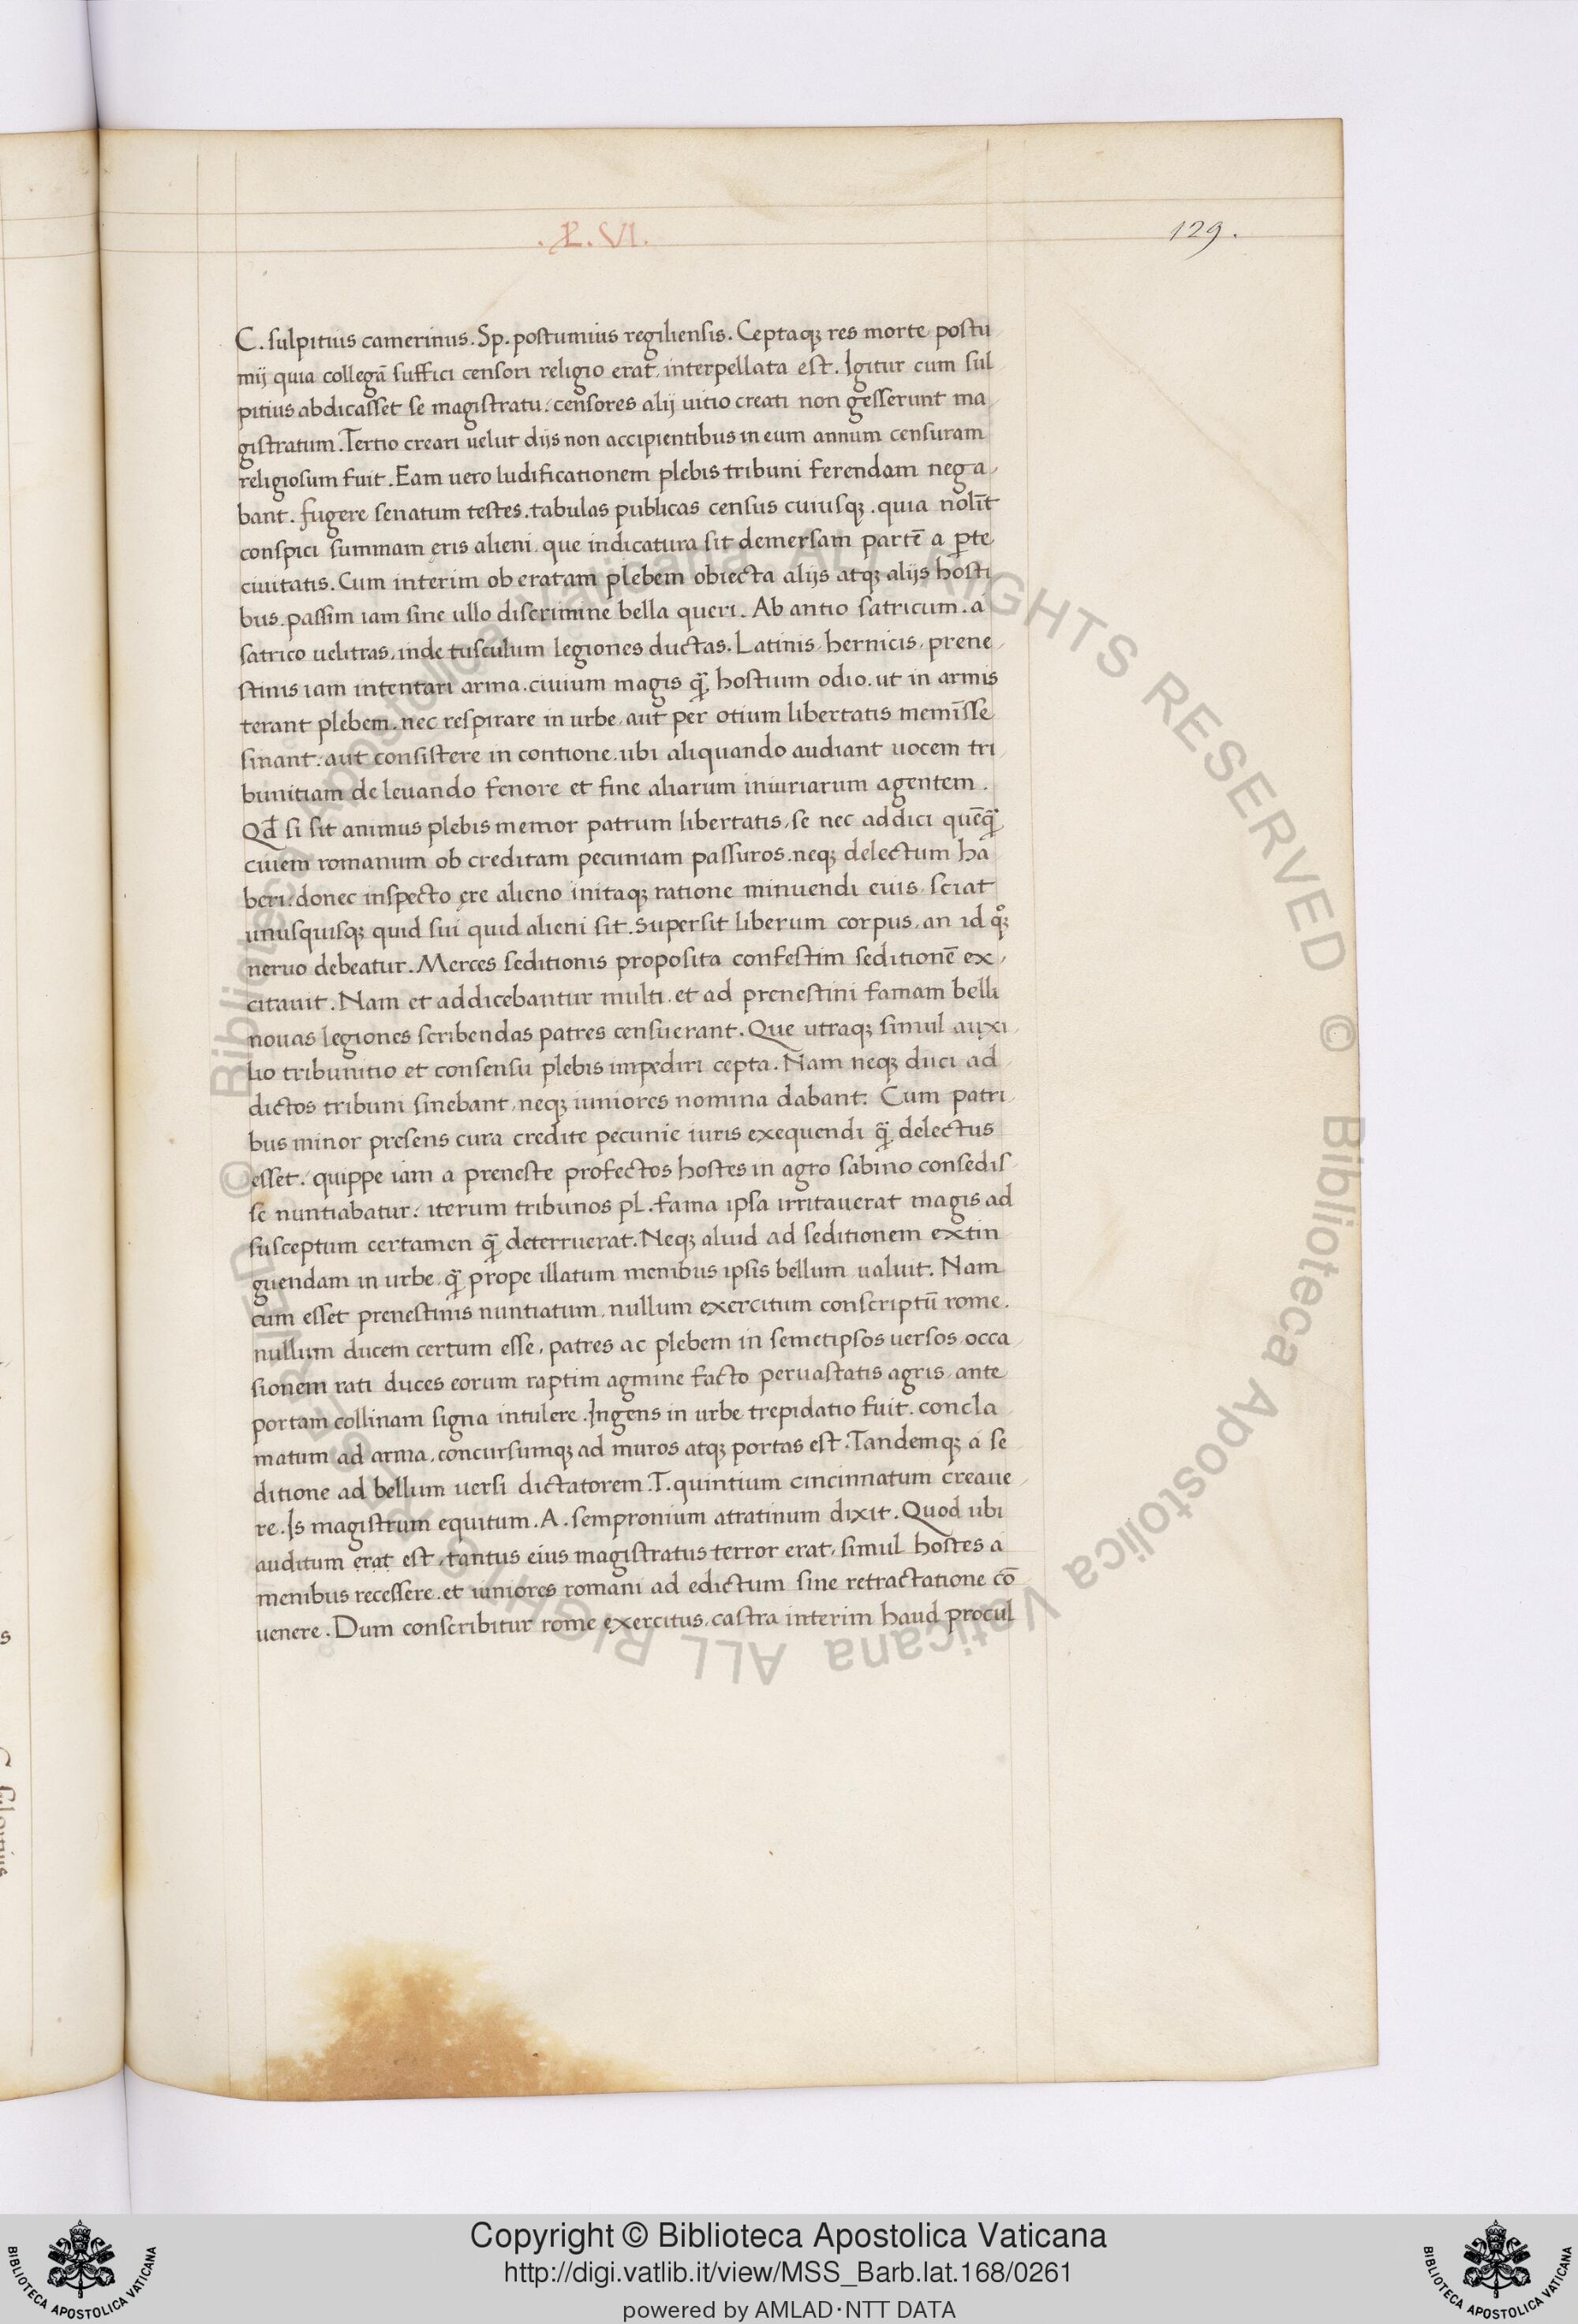 .L.VI.
129.
C. sulpitius camerinus. Sp. postumius regiliensis. Ceptaqꝫ res morte postu
mij quia collegā suffici censori religio erat, interpellata est. Igitur cum sul
pitius abdicasset se magistratu: censores alij uitio creati non gesserunt ma
gistratum. Tertio creari uelut dijs non accipientibus in eum annum censuram
religiosum fuit. Eam uero ludificationem plebis tribuni ferendam nega
bant. fugere senatum testes. tabulas publicas census cuiusqꝫ. quia nolīt
conspici summam ęris alieni, que indicatura sit demersam partē a ꝑte
ciuitatis. Cum interim ob eratam plebem obiecta alijs atqꝫ alijs hosti
bus. passim iam sine ullo discrimine bella queri. Ab antio satricum. a
satrico uelitras, inde tusculum legiones ductas. Latinis, hernicis, prene
stinis iam intentari arma. ciuium magis q̄ hostium odio. ut in armis
terant plebem. nec respirare in urbe, aut per otium libertatis memīsse
sinant: aut consistere in contione. ubi aliquando audiant uocem tri
bunitiam de leuando fenore et fine aliarum iniuriarum agentem.
Qd̄ si sit animus plebis memor patrum libertatis, se nec addici quēq̄
ciuem romanum ob creditam pecuniam passuros. neqꝫ delectum ha
beri: donec inspecto ęre alieno initaqꝫ ratione minuendi euis, sciat
unusquisqꝫ quid sui quid alieni sit. supersit liberum corpus, an id qͦꝫ
neruo debeatur. Merces seditionis proposita confestim seditionē ex
citauit. Nam et addicebantur multi, et ad prenestini famam belli
nouas legiones scribendas patres censuerant. Que utraqꝫ simul auxi
lio tribunitio et consensu plebis impediri cepta. Nam neqꝫ duci ad
dictos tribuni sinebant, neqꝫ iuniores nomina dabant: Cum patri
bus minor presens cura credite pecunie iuris exequendi q̄ delectus
esset: quippe iam a preneste profectos hostes in agro sabino consedis
se nuntiabatur: iterum tribunos pl. fama ipsa irritauerat magis ad
susceptum certamen q̄ deterruerat. Neqꝫ aliud ad seditionem extin
guendam in urbe, q̄ prope illatum menibus ipsis bellum ualuit. Nam
cum esset prenestinis nuntiatum, nullum exercitum conscriptū rome.
nullum ducem certum esse, patres ac plebem in semetipsos uersos, occa
sionem rati duces eorum raptim agmine facto peruastatis agris, ante
portam collinam signa intulere. Ingens in urbe trepidatio fuit. concla
matum ad arma, concursumqꝫ ad muros atqꝫ portas est. Tandemqꝫ a se
ditione ad bellum uersi dictatorem .T. quintium cincinnatum creaue
re. Is magistrum equitum .A. sempronium atratinum dixit. Quod ubi
auditum erat est, tantus eius magistratus terror erat, simul hostes a
menibus recessere. et iuniores romani ad edictum sine retractatione cō
uenere. Dum conscribitur rome exercitus, castra interim haud procul
© Biblioteca Apostolica Vaticana ALL RIGHTS RESERVED © Biblioteca Apostolica Vaticana ALL RIGHTS RESERVED
Copyright © Biblioteca Apostolica Vaticana
http://digi.vatlib.it/view/MSS_Barb.lat.168/0261
powered by AMLAD·NTT DATA
BIBLIOTECA APOSTOLICA VATICANA
BIBLIOTECA APOSTOLICA VATICANA